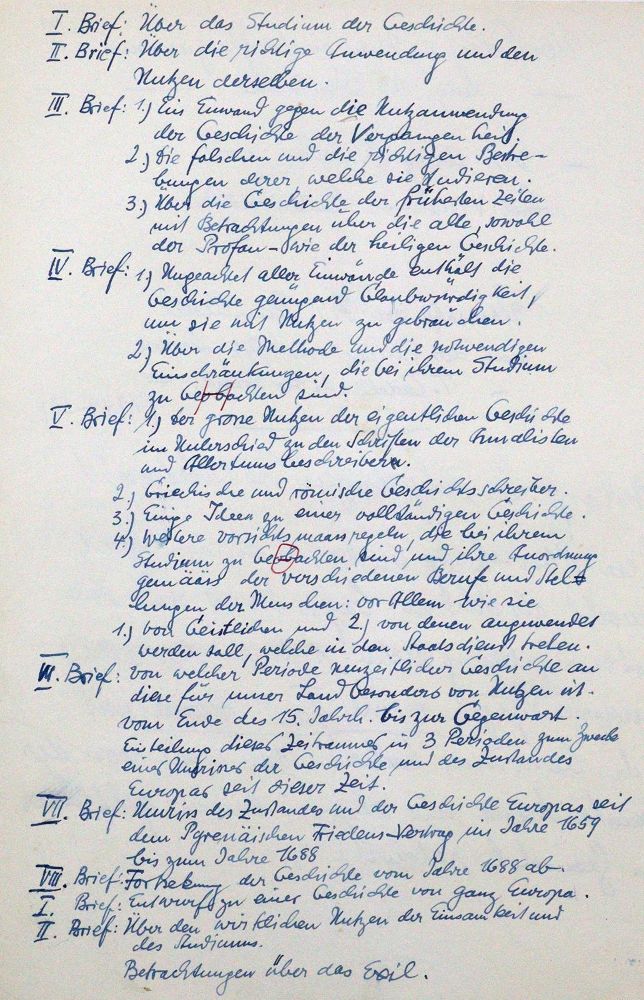 I. Brief: Über das Studium der Geschichte.
II. Brief: Über die richtige Anwendung und den
Nutzen derselben.
III. Brief: 1.) Ein Einwand gegen die Nutzanwendung
der Geschichte der Vergangenheit.
2.) Die falschen und die richtigen Bestre-
bungen derer, welche sie studieren.
3.) Über die Geschichte der frühesten Zeiten
mit Betrachtungen über die alte, sowohl
der Profan- wie der heiligen Geschichte.
IV. Brief: 1.) Ungeachtet aller Einwände enthält die
Geschichte genügend Glaubwürdigkeit,
um sie mit Nutzen zu gebrauchen.
2.) Über die Methode und die notwendigen
Einschränkungen, die bei ihrem Studium
zu beobachten sind.
V. Brief: 1.) Der grosse Nutzen der eigentlichen Geschichte
im Unterschied zu den Schriften der Annalisten
und Altertums beschreiber.
2.) Griechische und römische Geschichtsschreiber.
3.) Einige Ideen zu einer vollständigen Geschichte.
4.) Weitere Vorsichtsmaassregeln, die bei ihrem
Studium zu beobachten sind und ihre Anordnung
gemäss der verschiedenen Berufe und Stel-
lungen der Menschen: vor Allem wie sie
1.) von Geistlichen und 2.) von denen angewendet
werden soll, welche in den Staatsdienst treten.
VI. Brief: von welcher Periode neuzeitlicher Geschichte an
diese fürs unser Land besonders von Nutzen ist.
vom Ende des 15. Jahrh. bis zur Gegenwart.
Einteilung dieses Zeitraumes in 3 Perioden zum Zwecke
eines Umrisses der Geschichte und des Zustandes
Europas seit dieser Zeit.
VII. Brief: Umriss des Zustandes und der Geschichte Europas seit
dem Pyrenäischen Friedens-Vertrag im Jahre 1659
bis zum Jahre 1688
VIII. Brief: Fortsetzung der Geschichte vom Jahre 1688 ab.
I. Brief: Entwurf zu einer Geschichte von ganz Europa.
II. Brief: Über den wirklichen Nutzen der Einsamkeit und
des Studiums.
Betrachtungen über das Exil.